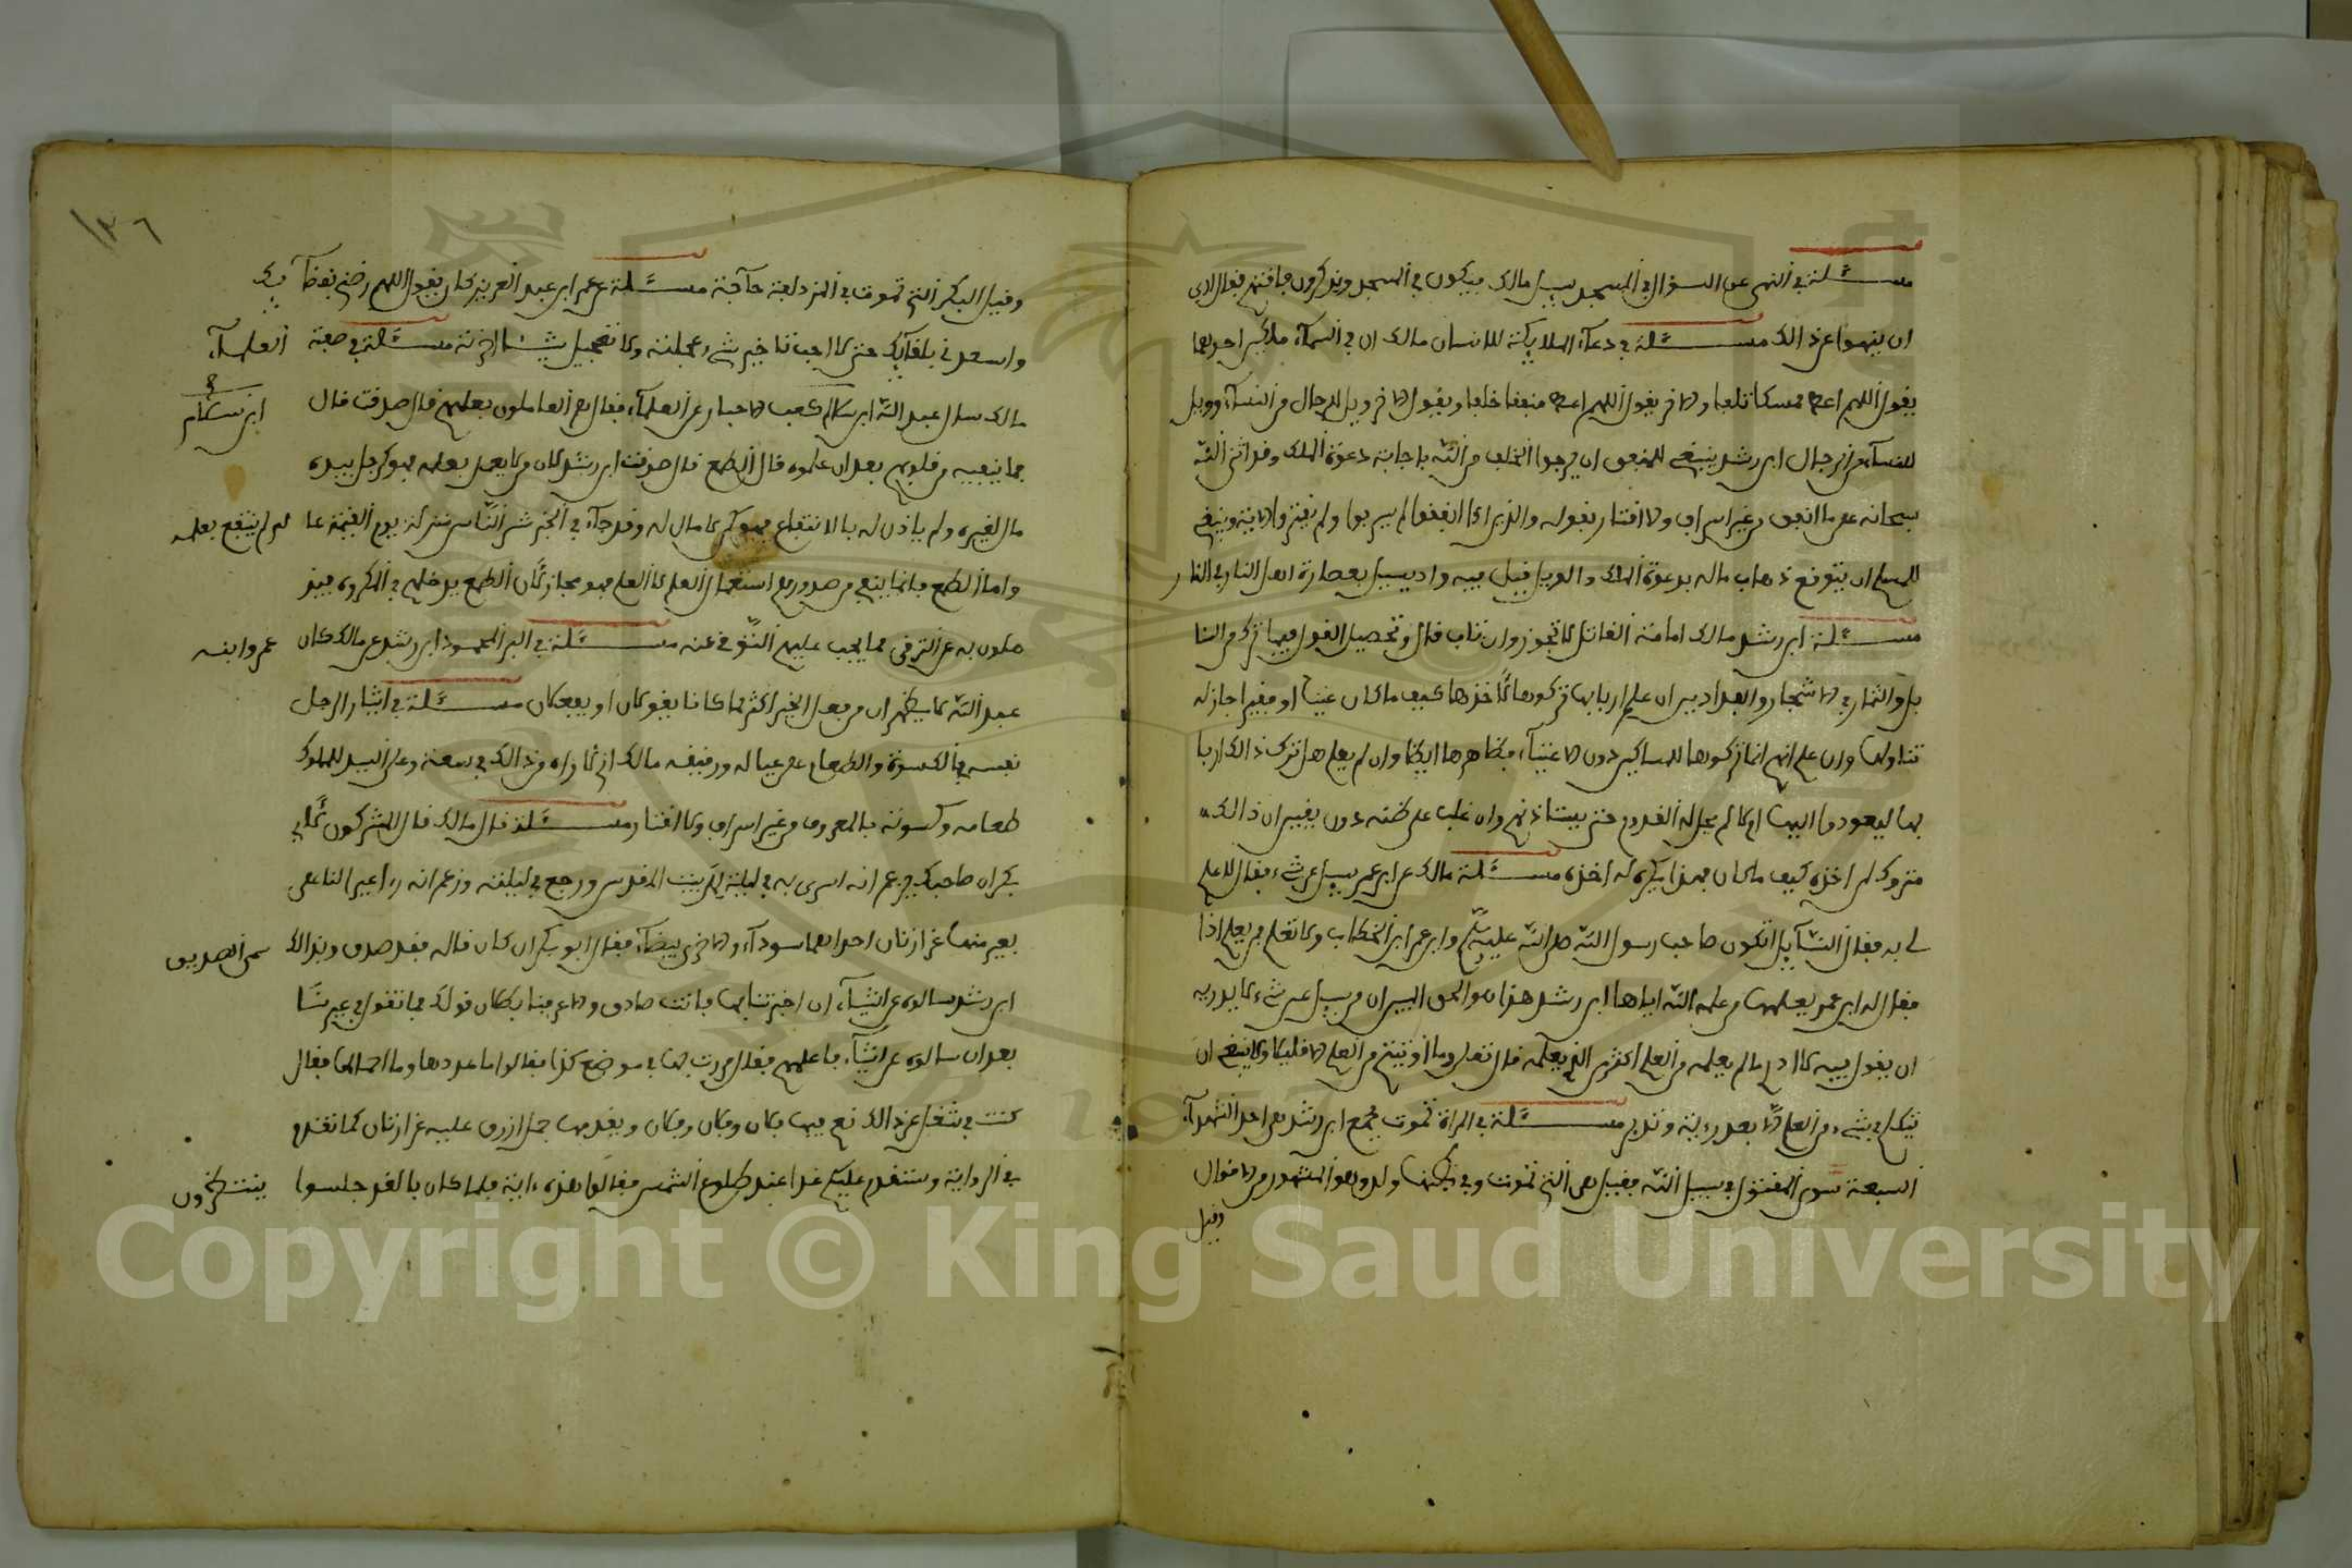 مسئلة في النهي عن السؤال في المسجد سيل مالك عمن يكون في المسجد ويذكرون فاقتهم فقال ارى
ان ينهوا عن ذالك مسئلة في دعآء الملايكة للانسان مالك ان في السمآء ملكين احدهما
يقول اللهم اعط ممسكا تلفا والاخر يقول اللهم اعط منفقا خلفا ويقول الاخر ويل للرجال من النسآء وويل
للنسآء من الرجال ابن رشد ينبغي للمنفق ان يرجوا الخلف من الله باجابة دعوة الملك وقد اثنى الله
سبحانه على ما انفق من غير اسراف ولا اقتار بقوله والذين اذا انفقوا لم يسرفوا ولم يقتروا الاية وينبغي
للمسلم ان يتوقع ذهاب ماله بدعوة الملك والويل قيل فيه واد يسيل بعصارة اهل النار في النار
مسئلة ابن رشد مالك امامة القاتل لا تجوز وان تاب قال وتحصيل القول فيما ترك من السنا
بل والثمار في الاشجار والفدادين ان علم اربابها تركوها لاخذها كيف ما كان غنيا او فقيرا جاز له
تناولها وان علم انهم انما تركوها للمساكين دون الاغنيآء فظاهرها ايضا وان لم يعلم هل ترك ذالك اربا
بها ليعودوا اليها ام لا لم يحل له القدوم حتى يستاذنهم وان غلب على ظنه دون يقين ان ذالك
متروك لمن اخذه كيف ما كان فهذا يكره له اخذه مسئلة مالك عن ابن عمر سيل عن شيء فقال لا علم
لي به فقال السآيل اتكون صاحب رسول الله صلى الله عليه وسلم وابن عمر ابن الخطاب ولا تعلم فمن يعلم اذا
فقال له ابن عمر يعلمها من علمه الله اياها ابن رشد هذا من الحق البين ان من سيل عن شيء لا يدريه
ان يقول فيه لا ادري مالم يعلمه من العلم اكثر من الذي يعلمه قال تعلى وما اوتيتم من العلم الا قليلا ولا ينبغي ان
يتكلم في شيء من العلم الا بعد روية وتدبر مسئلة في المراة تموت بجمع ابن رشد هي احد الشهدآء
السبعة سوى المقتول في سبيل الله فقيل هي التي تموت وفي بطنها ولد وهو المشهور من الاقوال
وقيل
١٣٦
وقيل البكر التي تموت في المزدلفة حآجة مسئلة عن عمر ابن عبد العزيز كان يقول اللهم رضني بقضآيك
واسعدني بلقآيك حتى لا احب تاخير شيء عجلته ولا تعجيل شيئا اخرته مسئلة في صفة العلمآء
مالك سال عبد الله ابن سلام كعب الاحبار عن العلمآء فقال هم العاملون بعلمهم قال صدقت قال ابن سلام
فما ينفيه من قلوبهم بعد ان علموه قال الطمع قال صدقت ابن رشد لان من لا يعمل بعلمه فهو كرجل بيده
مال لغيره ولم ياذن له بالانتفاع فهو كمن لا مال له وقد جآء في الخبر شر الناس منزلة يوم القيمة عالم لم ينتفع بعلمه
واما الطمع فانما ينفي من صدورهم استعمال العلم لا العلم فهو مجاز لان الطمع يدخلهم في المكروه فيذ
هلون به عن الترقي مما يجب عليهم التوقي عنه مسئلة في البر المحمود ابن رشد عن مالك كان عمر وابنه
عبد الله لا يظهر ان من فعل الخير اكثر مما كانا يقولان او يفعلان مسئلة في ايثار الرجل
نفسه في الكسوة والطعام على عياله ورفيقه مالك انه لا واه من ذالك في سعة وعلى السيد للمملوك
طعامه وكسوته بالمعروف من غير اسراف ولا اقتار مسئلة قال مالك قال المشركون لابي
بكر ان صاحبك يزعم انه اسري به في ليلة الى بيت المقدس ورجع في ليلته وزعم انه راء عيرا لنا على
بعير منها غرارتان احداهما سودآء والاخرى بيضآء فقال ابو بكر ان كان قاله فقد صدق وبذالك سمي الصديق
ابن رشد سالوه عن اشيآء ان اخبرتنا بها فانت صادق والا عرفنا بطلان قولك فما تقول في عيرنا
بعد ان سالوه عن اشيآء فاعلمهم فقال مررت بها في موضع كذا فقالوا ما عددها وما احمالها فقال
كنت في شغل عن ذالك نعم فيها فلان وفلان وفلان ويقدمها جمل ازرق عليه غرارتان كما تقدم
في الرواية وستقدم عليكم غدا عند طلوع الشمس فقالوا هذه ءاية فلما كان بالغد جلسوا ينتظرون
Copyright © King Saud University